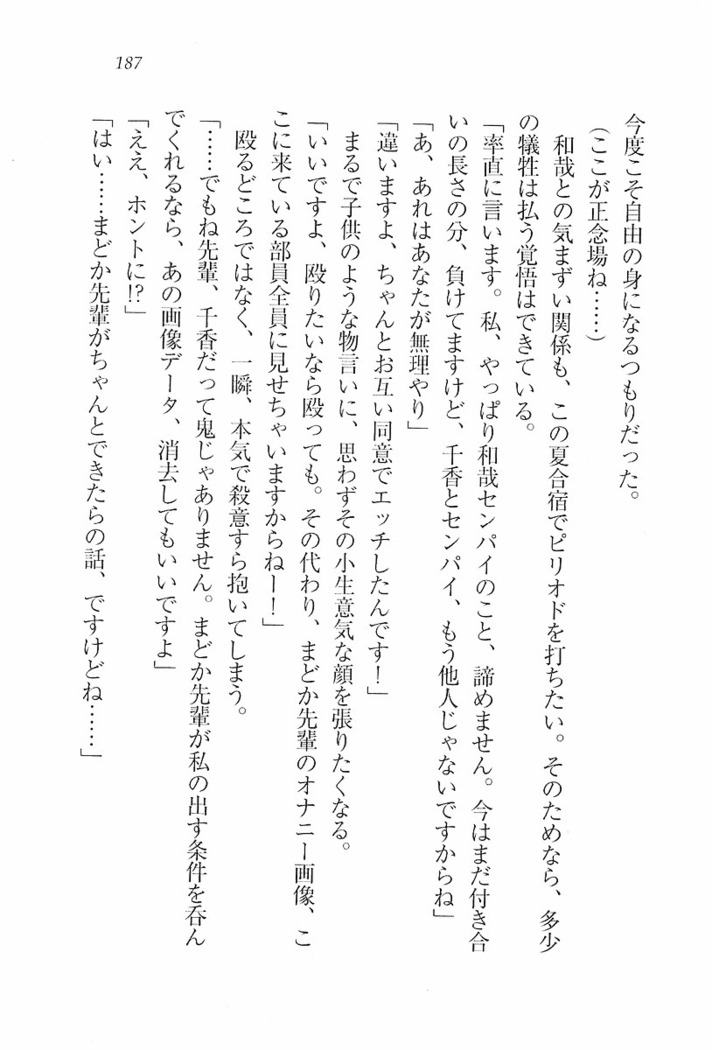 187
今度こそ自由の身になるつもりだった。
(ここが正念場ね……)
和哉との気まずい関係も、この夏合宿でピリオドを打ちたい。そのためなら、多少
の犠牲は払う覚悟はできている。
「率直に言います。私、やっぱり和哉センパイのこと、諦めません。今はまだ付き合
いの長さの分、負けてますけど、千香とセンパイ、もう他人じゃないですからね」
「あ、あれはあなたが無理やり」
「違いますよ、ちゃんとお互い同意でエッチしたんです!」
まるで子供のような物言いに、思わずその小生意気な顔を張りたくなる。
「いいですよ、殴りたいなら殴っても。その代わり、まどか先輩のオナニー画像、こ
こに来ている部員全員に見せちゃいますからねー!」
殴るどころではなく、一瞬、本気で殺意すら抱いてしまう。
「……でもね先輩、千香だって鬼じゃありません。まどか先輩が私の出す条件を呑ん
でくれるなら、あの画像データ、消去してもいいですよ」
「ええ、ホントに!?」
「はい……まどか先輩がちゃんとできたらの話、ですけどね……」